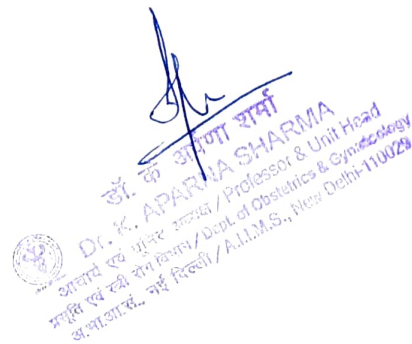 डॉ. के अपर्णा शर्मा
Dr. K. APARNA SHARMA
आचार्य एवं यूनिट अध्यक्ष / Professor & Unit Head
प्रसूति एवं स्त्री रोग विभाग / Dept. of Obstetrics & Gynaecology
अ.भा.आ.सं., नई दिल्ली / A.I.I.M.S., New Delhi-110029